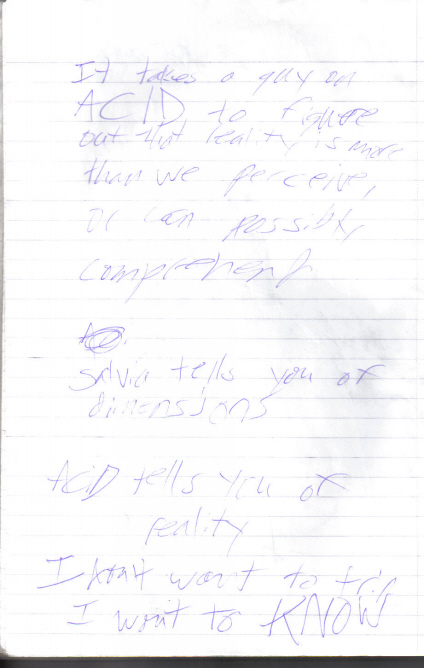 It takes a guy on
ACID to figure
out that reality is more
than we perceive,
or can possibly
comprehend
Salvia tells you of
dimensions
ACiD tells you of
reality
I dont want to trip
I want to KNOW